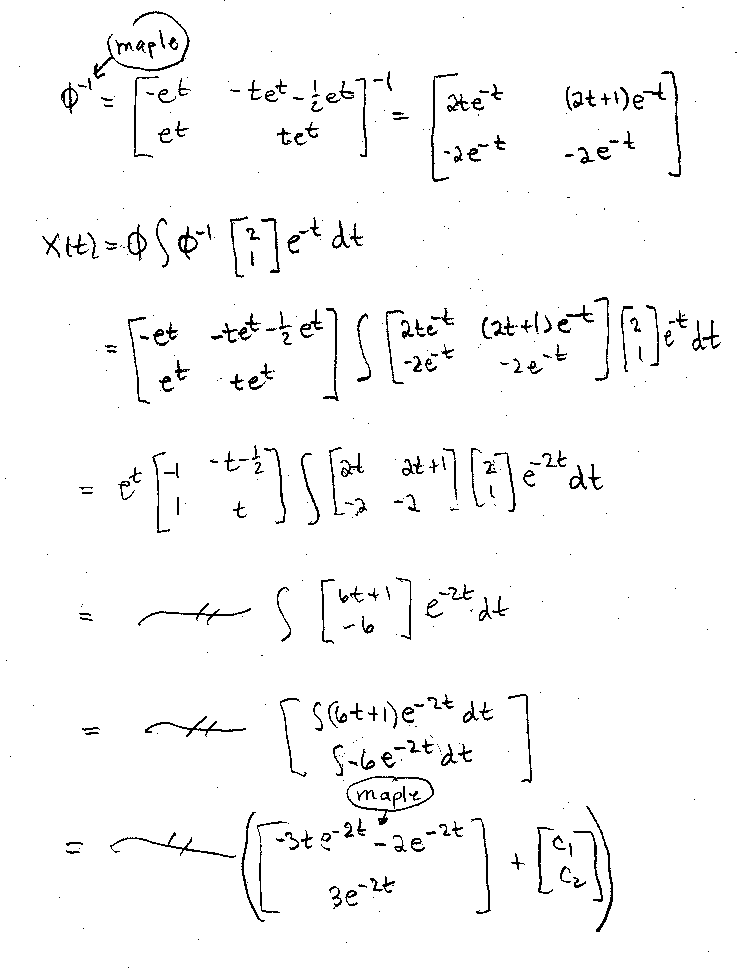 maple
ϕ⁻¹ = [-eᵗ  -teᵗ - ½eᵗ; eᵗ  teᵗ]⁻¹ = [2te⁻ᵗ  (2t+1)e⁻ᵗ; -2e⁻ᵗ  -2e⁻ᵗ]
X(t) = ϕ ∫ ϕ⁻¹ [2; 1] e⁻ᵗ dt
= [-eᵗ  -teᵗ - ½ eᵗ; eᵗ  teᵗ] ∫ [2te⁻ᵗ  (2t+1)e⁻ᵗ; -2e⁻ᵗ  -2e⁻ᵗ] [2; 1] e⁻ᵗ dt
= eᵗ [-1  -t-½; 1  t] ∫ [2t  2t+1; -2  -2] [2; 1] e⁻²ᵗ dt
= —//— ∫ [6t+1; -6] e⁻²ᵗ dt
= —//— [∫(6t+1)e⁻²ᵗ dt; ∫-6e⁻²ᵗ dt]
maple
= —//— ([-3te⁻²ᵗ - 2e⁻²ᵗ; 3e⁻²ᵗ] + [C₁; C₂])